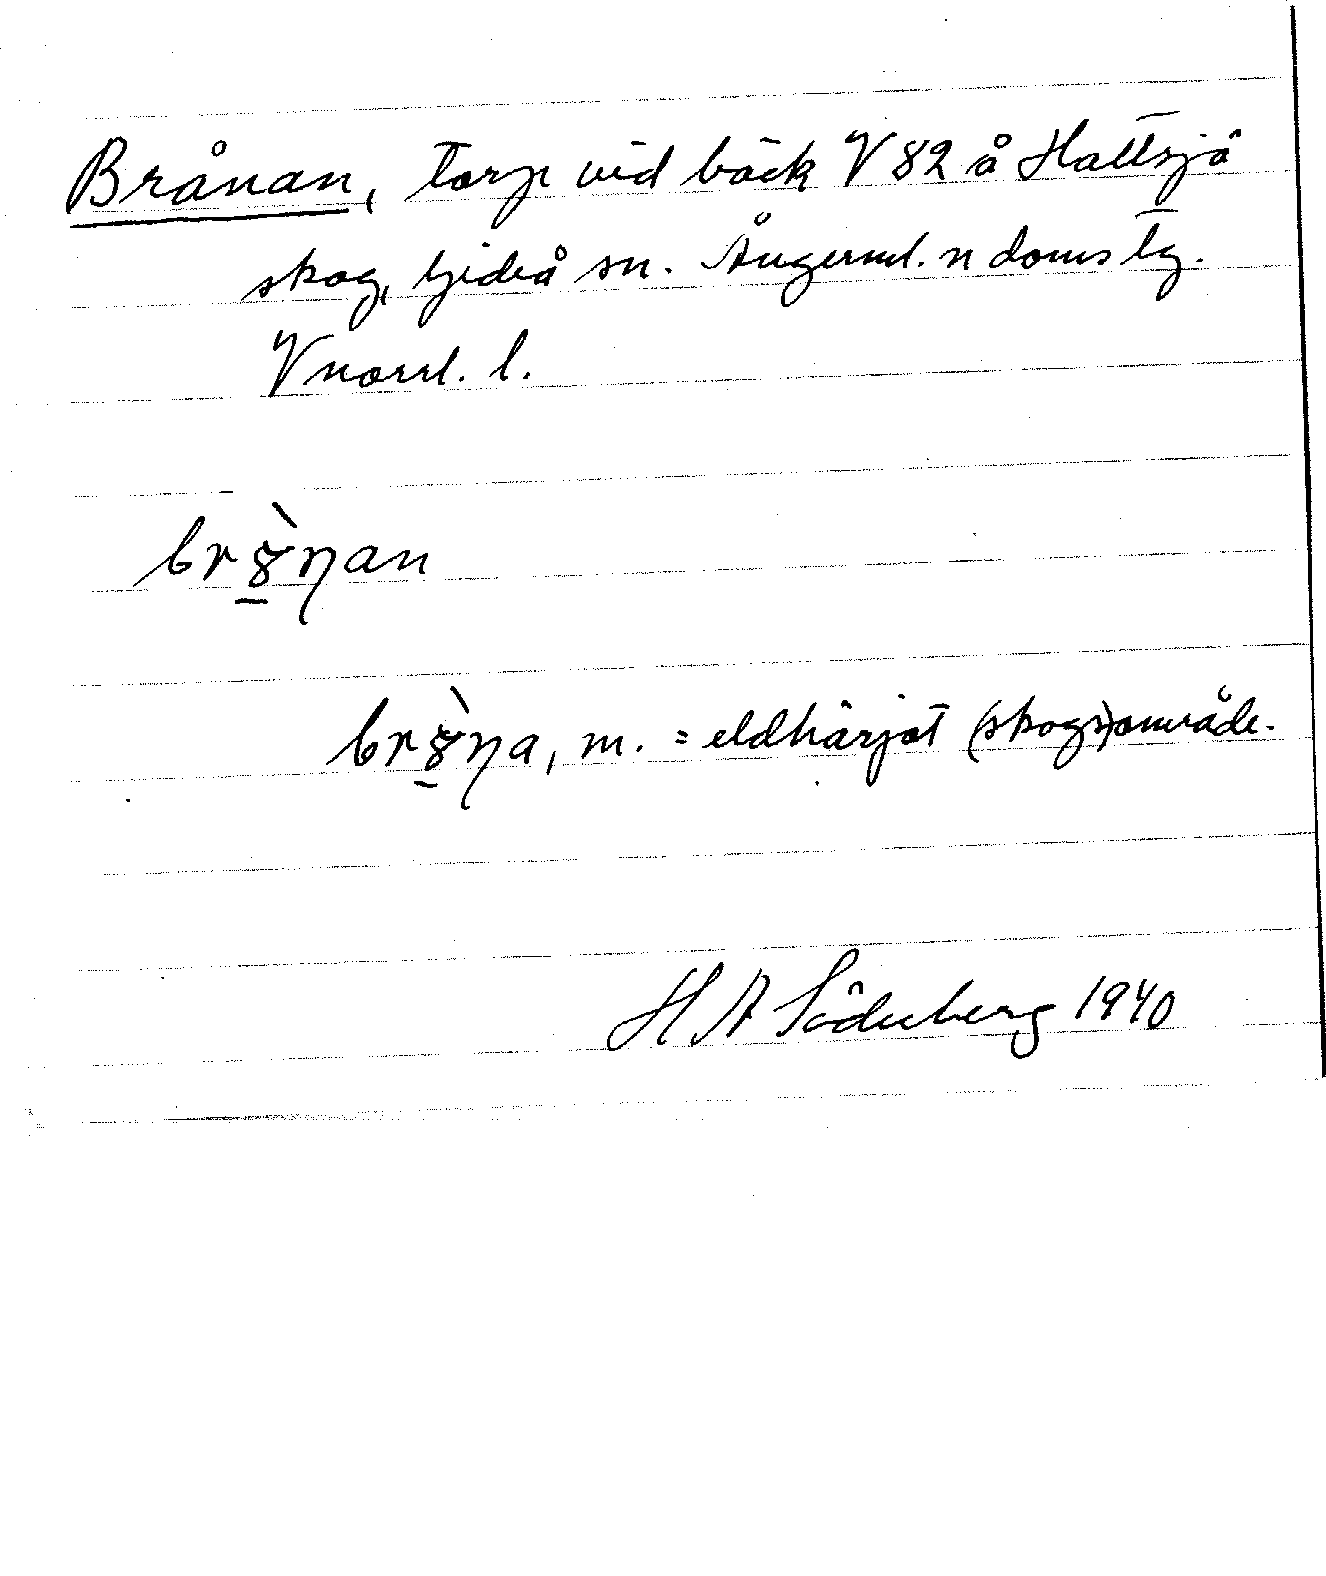 Brånan, torp vid bäck V 82 å Hattsjö
skog, Gideå sn. Ångerml. n doms tg.
Vnorrl. l.
br8̲̀ŋan
br8̲̀ŋa, m. = eldhärjat (skogs)område.
H A Söderberg 1940